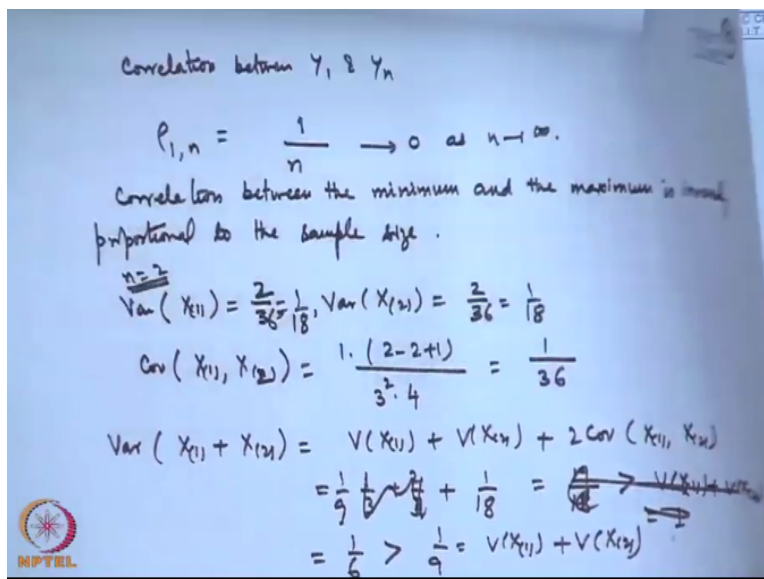 Correlation between Y₁ & Yₙ
ρ₁,ₙ = 1/n → 0 as n → ∞.
Correlation between the minimum and the maximum is
proportional to the sample size.
n=2
Var(X₍₁₎) = 2/36 = 1/18, Var(X₍₂₎) = 2/36 = 1/18
Cov(X₍₁₎, X₍₂₎) = 1.(2-2+1)/3².4 = 1/36
Var(X₍₁₎ + X₍₂₎) = V(X₍₁₎) + V(X₍₂₎) + 2 Cov(X₍₁₎, X₍₂₎)
= 1/9 + 1/18 =
= 1/6 > 1/9 = V(X₍₁₎) + V(X₍₂₎)
NPTEL